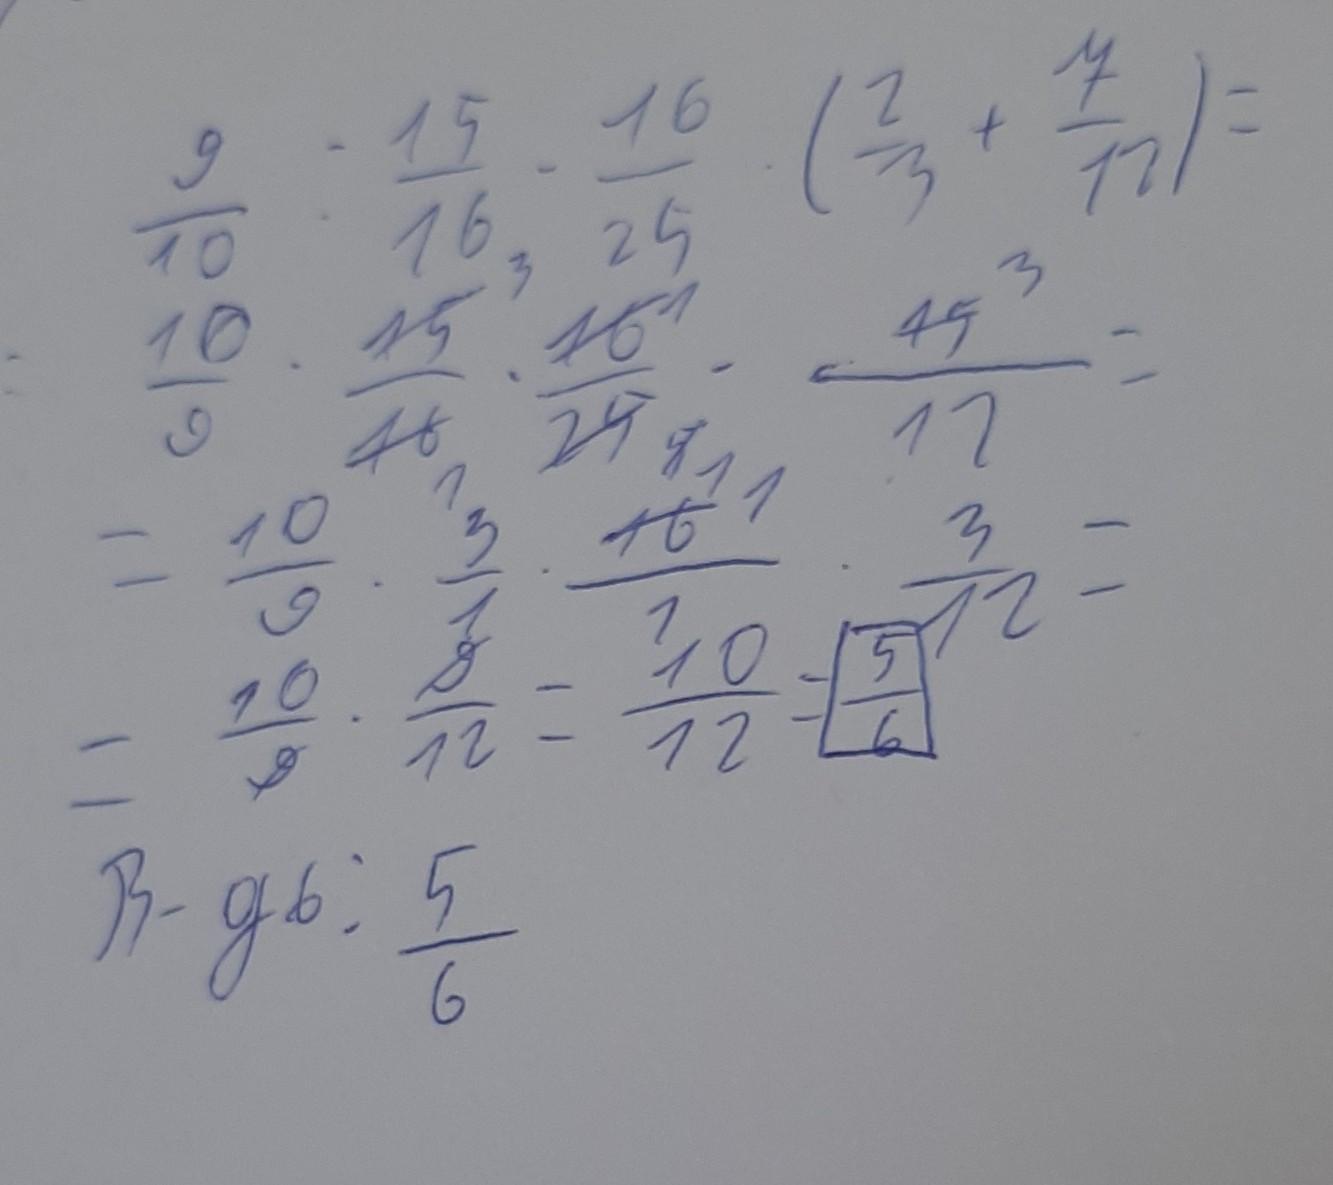 9/10 : 15/16 · 16/25 · (2/3 + 7/12) =
= 10/9 · 15/16 · 16/25 · 15/12 =
= 10/9 · 3/1 · 16/1 · 3/12 =
= 10/9 · 9/12 = 10/12 = 5/6
В-дь: 5/6